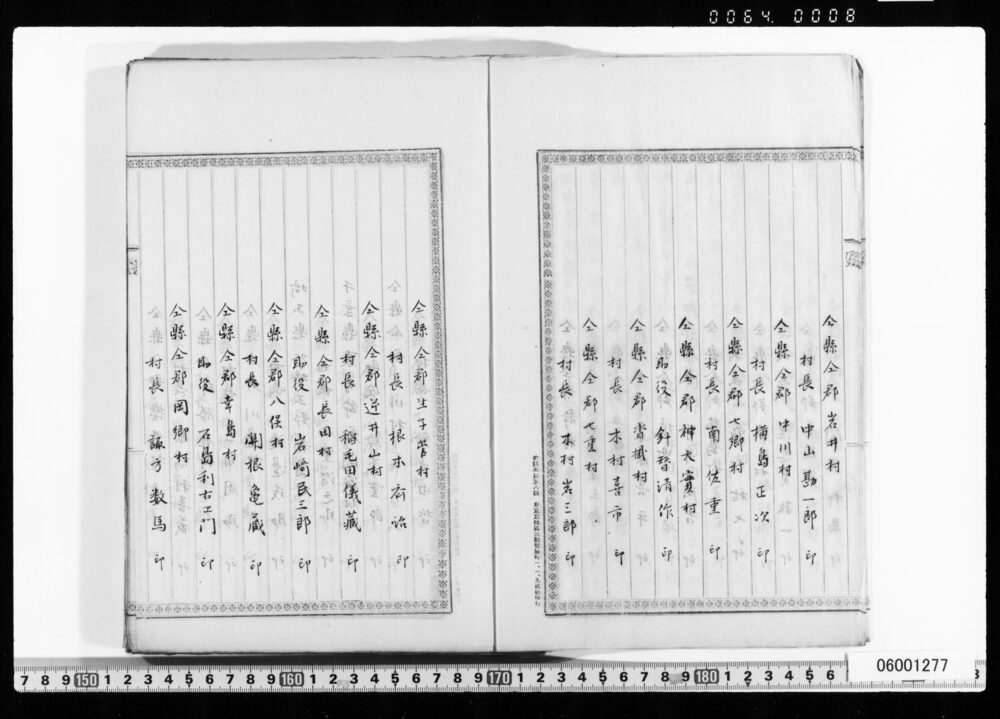 0064. 0008
仝縣仝郡岩井村
村長 中山勘一郎 印
仝縣仝郡中川村
村長 横島正次 印
仝縣仝郡七郷村
村長 南 佐重 印
仝縣仝郡神大實村
助役 針替清作 印
仝縣仝郡沓掛村
村長 木村喜市 印
仝縣仝郡七重村
村長 木村岩三郎 印
仝縣仝郡生子菅村
村長 根本 印
仝縣仝郡逆井山村
村長 稲毛田儀藏 印
仝縣仝郡長田村
助役 岩崎民三郎 印
仝縣仝郡八俣村
村長 関根亀藏 印
仝縣仝郡幸島村
助役 石島利右エ门 印
仝縣仝郡岡郷村
村長 諏方数馬 印
7 8 9 150 1 2 3 4 5 6 7 8 9 160 1 2 3 4 5 6 7 8 9 170 1 2 3 4 5 6 7 8 9 180 1 2 3 4 5 6
06001277